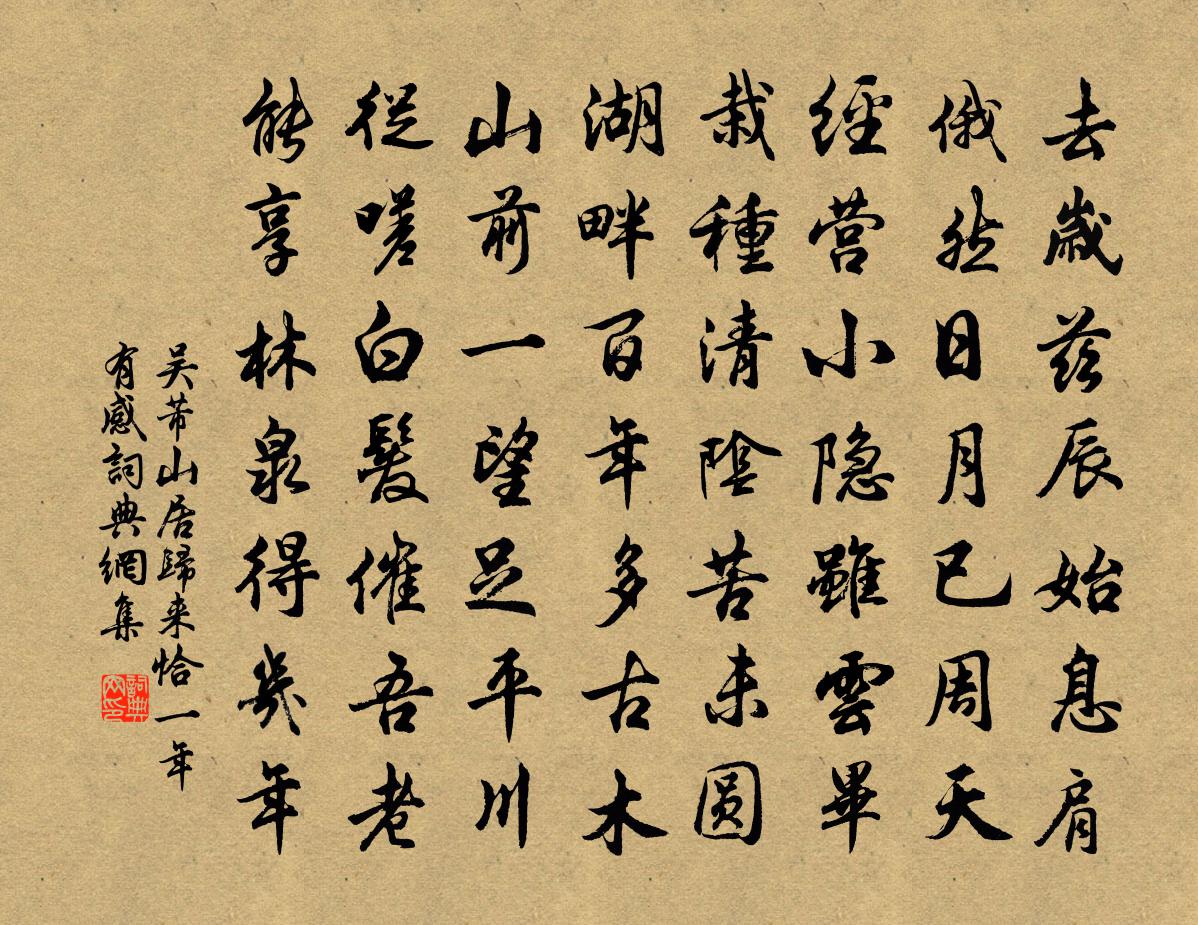 去歲茲辰始息肩
俄然日月已周天
經营小隐雖雲畢
栽種清陰苦未圆
湖畔百年多古木
山前一望足平川
從嗟白髮催吾老
能享林泉得幾年
吴芾山居歸来恰一年
有感詞典網集
詞典
网印